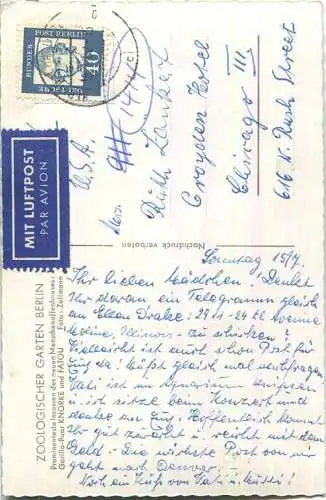 DEUTSCHE
BUNDES
POST BERLIN
40
MIT LUFTPOST
PAR AVION
ZOOLOGISCHER GARTEN BERLIN
Prominenteste Insassen des neuen Menschenaffenhauses:
Gorilla-Paar KNORKE und FATOU
Foto: Zellmann
Nachdruck verboten
U.S.A.
Mrs. Ruth
Croyden Hotel
Chicago III
616 N. Rush Street
Sonntag 15/9.
Ihr lieben Mädchen! Denkt
Ihr daran ein Telegramm gleich
an Ellen Drake: 2911-24 St
Moline, Illinois - zu schicken?
Vielleicht ist auch schon Post für
Euch da! Müßt gleich mal nachfragen
Vati ist im Aquarium
u. ich sitze beim Konzert und
denke an Euch. Hoffentlich kommt
Ihr gut zurecht u. reicht mit dem
Geld. Die nächste Post von mir
geht nach Denver.
Noch ein Kuß von Vati u. Mutti!